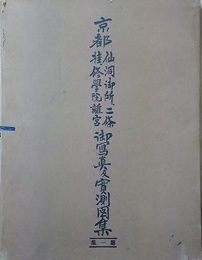 京都
仙洞御所二条
脩學院離宮
御寫真及實測図集
第一輯